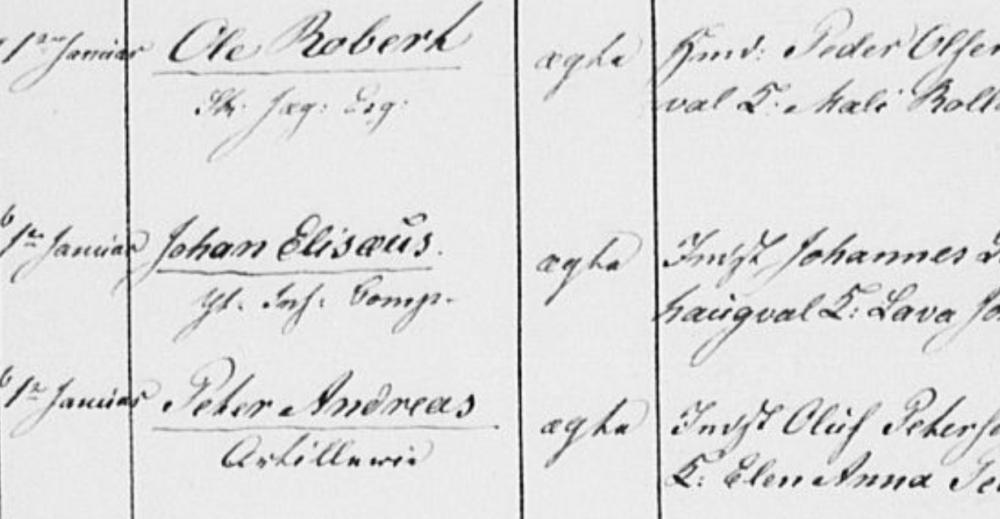 1ste Januar Ole Robert ægte Hmd: Peder Olsen
Jæg: val K: Mali
6
1ste Januar Johan Elisæus. ægte Indst Johannes
Inf: Comp. haugval K: Lava
6
1ste Januar Peter Andreas ægte Indst Oluf
Artillerie K: Elen Anna